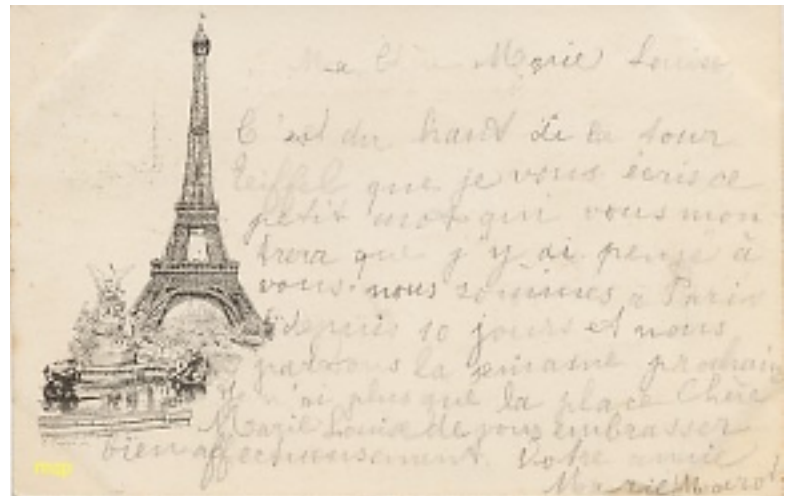 Ma Chère Marie Louise,
C'est du haut de la tour
Eiffel que je vous écris ce
petit mot qui vous mon
trera que j'y ai pensé à
vous. nous sommes a Paris
depuis 10 jours et nous
partons la semaine prochaine
Je n'ai plus que la place Chère
Marie Louise de vous embrasser
bien affectueusement. Votre amie
Marie
map